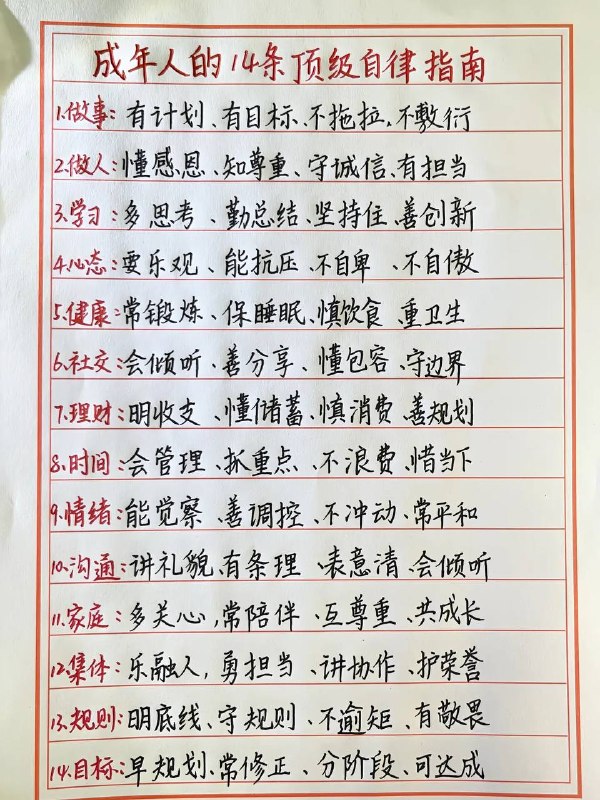 成年人的14条顶级自律指南
1.做事：有计划、有目标、不拖拉、不敷衍
2.做人：懂感恩、知尊重、守诚信、有担当
3.学习：多思考、勤总结、坚持住、善创新
4.心态：要乐观、能抗压、不自卑、不自傲
5.健康：常锻炼、保睡眠、慎饮食、重卫生
6.社交：会倾听、善分享、懂包容、守边界
7.理财：明收支、懂储蓄、慎消费、善规划
8.时间：会管理、抓重点、不浪费、惜当下
9.情绪：能觉察、善调控、不冲动、常平和
10.沟通：讲礼貌、有条理、表意清、会倾听
11.家庭：多关心，常陪伴、互尊重、共成长
12.集体：乐融人，勇担当、讲协作、护荣誉
13.规则：明底线、守规则、不逾矩、有敬畏
14.目标：早规划、常修正、分阶段、可达成